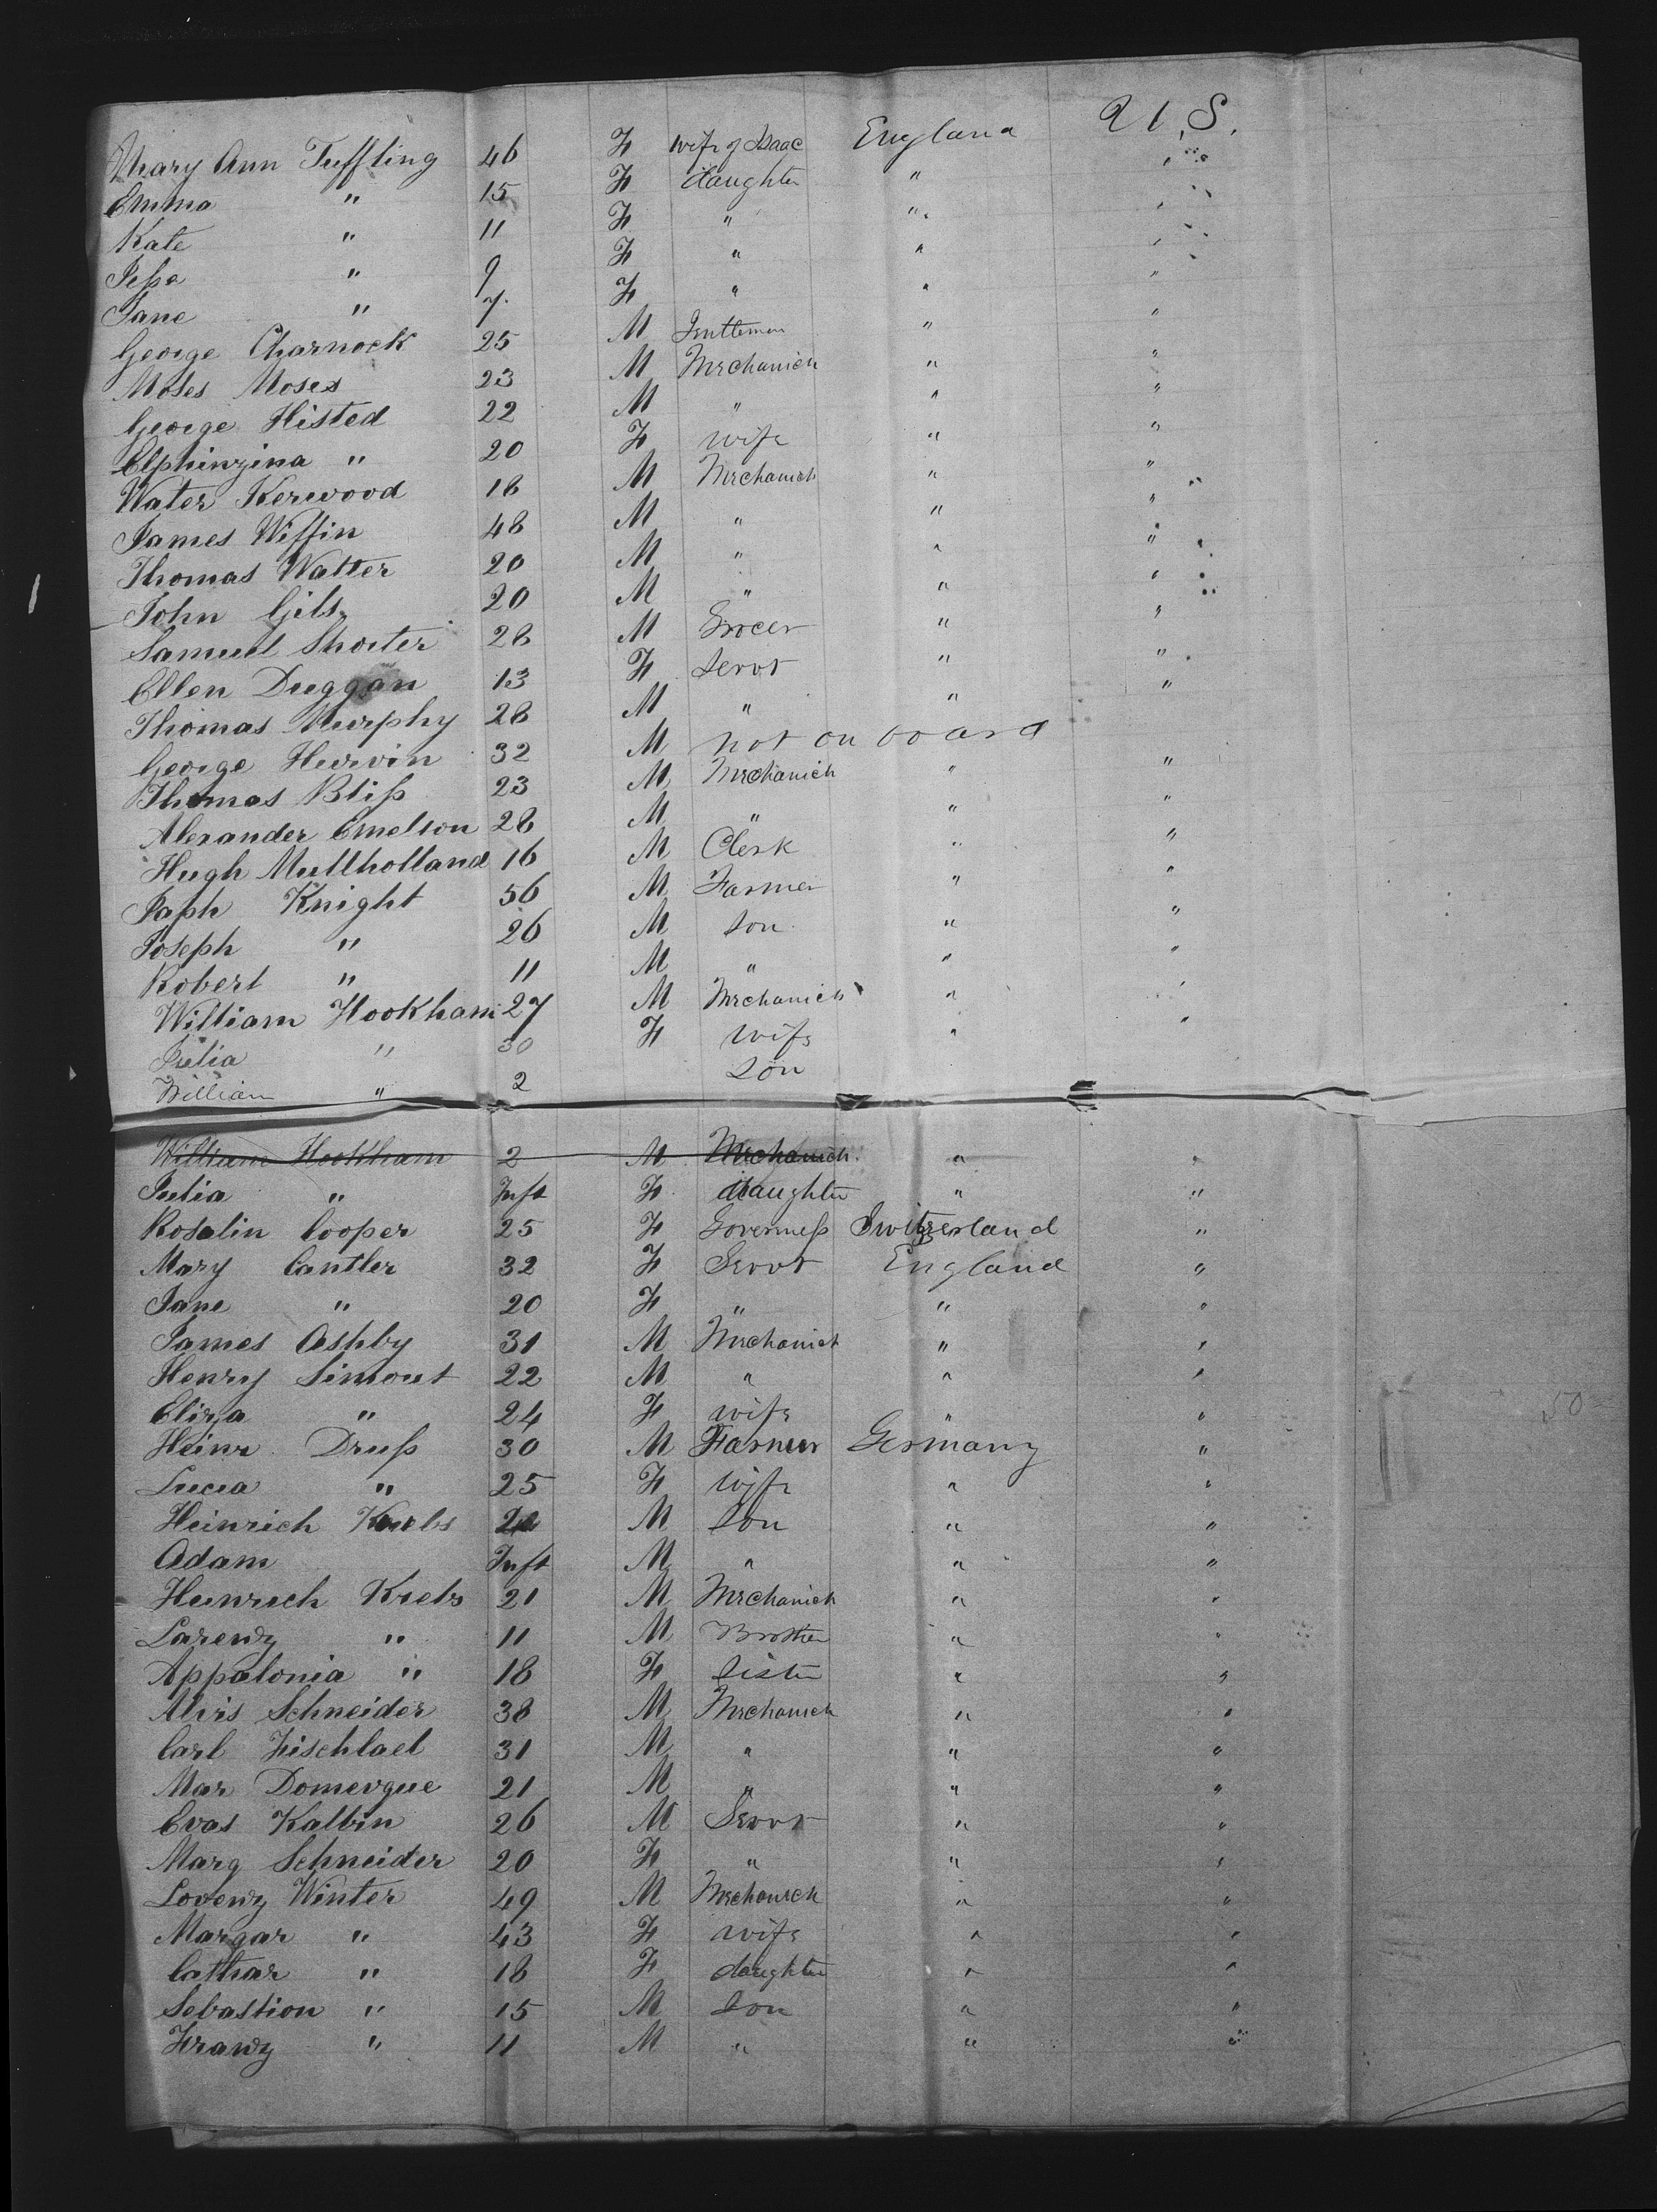 Mary Ann Tuffling 46 F wife of Isaac England U.S.
Emma " 15 F daughter " "
Kate " 11 F " " "
Jesse " 9 F " " "
Jane " 7 F " " "
George Charnock 25 M Gentleman " "
Moses Moses 23 M Mechanich " "
George Histed 22 M " " "
Elphinzina " 20 F wife " "
Water Kerwood 18 M Mechanich " "
James Wiffin 48 M " " "
Thomas Watter 20 M " " "
John Gils 20 M " " "
Samuel Shorter 28 M Grocer " "
Ellen Duggan 13 F Servt " "
Thomas Murphy 28 M " " "
George Hurvin 32 M not on board
Thomas Bliss 23 M Mechanich " "
Alexander Emelson 28 M " " "
Hugh Mullholland 16 M Clerk " "
Japh Knight 56 M Farmer " "
Joseph " 26 M Son " "
Robert " 11 M " " "
William Hookham 27 M Mechanich " "
Julia " 30 F wife " "
William " 2 Son
William Hookham 2 M Mechanich " "
Julia " Inft F daughter " "
Rosalin Cooper 25 F Governess Switzerland "
Mary Cantler 32 F Servt England "
Jane " 20 F " " "
James Ashby 31 M Mechanich " "
Henry Simout 22 M " " "
Eliza " 24 F wife " "
Heinr Druss 30 M Farmer Germany "
Lucia " 25 F wife " "
Heinrich Krebs M Son " "
Adam Inft M " " "
Heinrich Krebs 21 M Mechanich " "
Larenz " 11 M Brother " "
Appalonia " 18 F Sister " "
Alvis Schneider 38 M Mechanich " "
Carl Fischlael 31 M " " "
Mar Domergue 21 M " " "
Evas Kalbin 26 M Servt " "
Marg Schneider 20 F " " "
Lorenz Winter 49 M Mechanich " "
Margar " 43 F wife " "
Cathar " 18 F daughter " "
Sebastion " 15 M Son " "
Franz " 11 M " " "